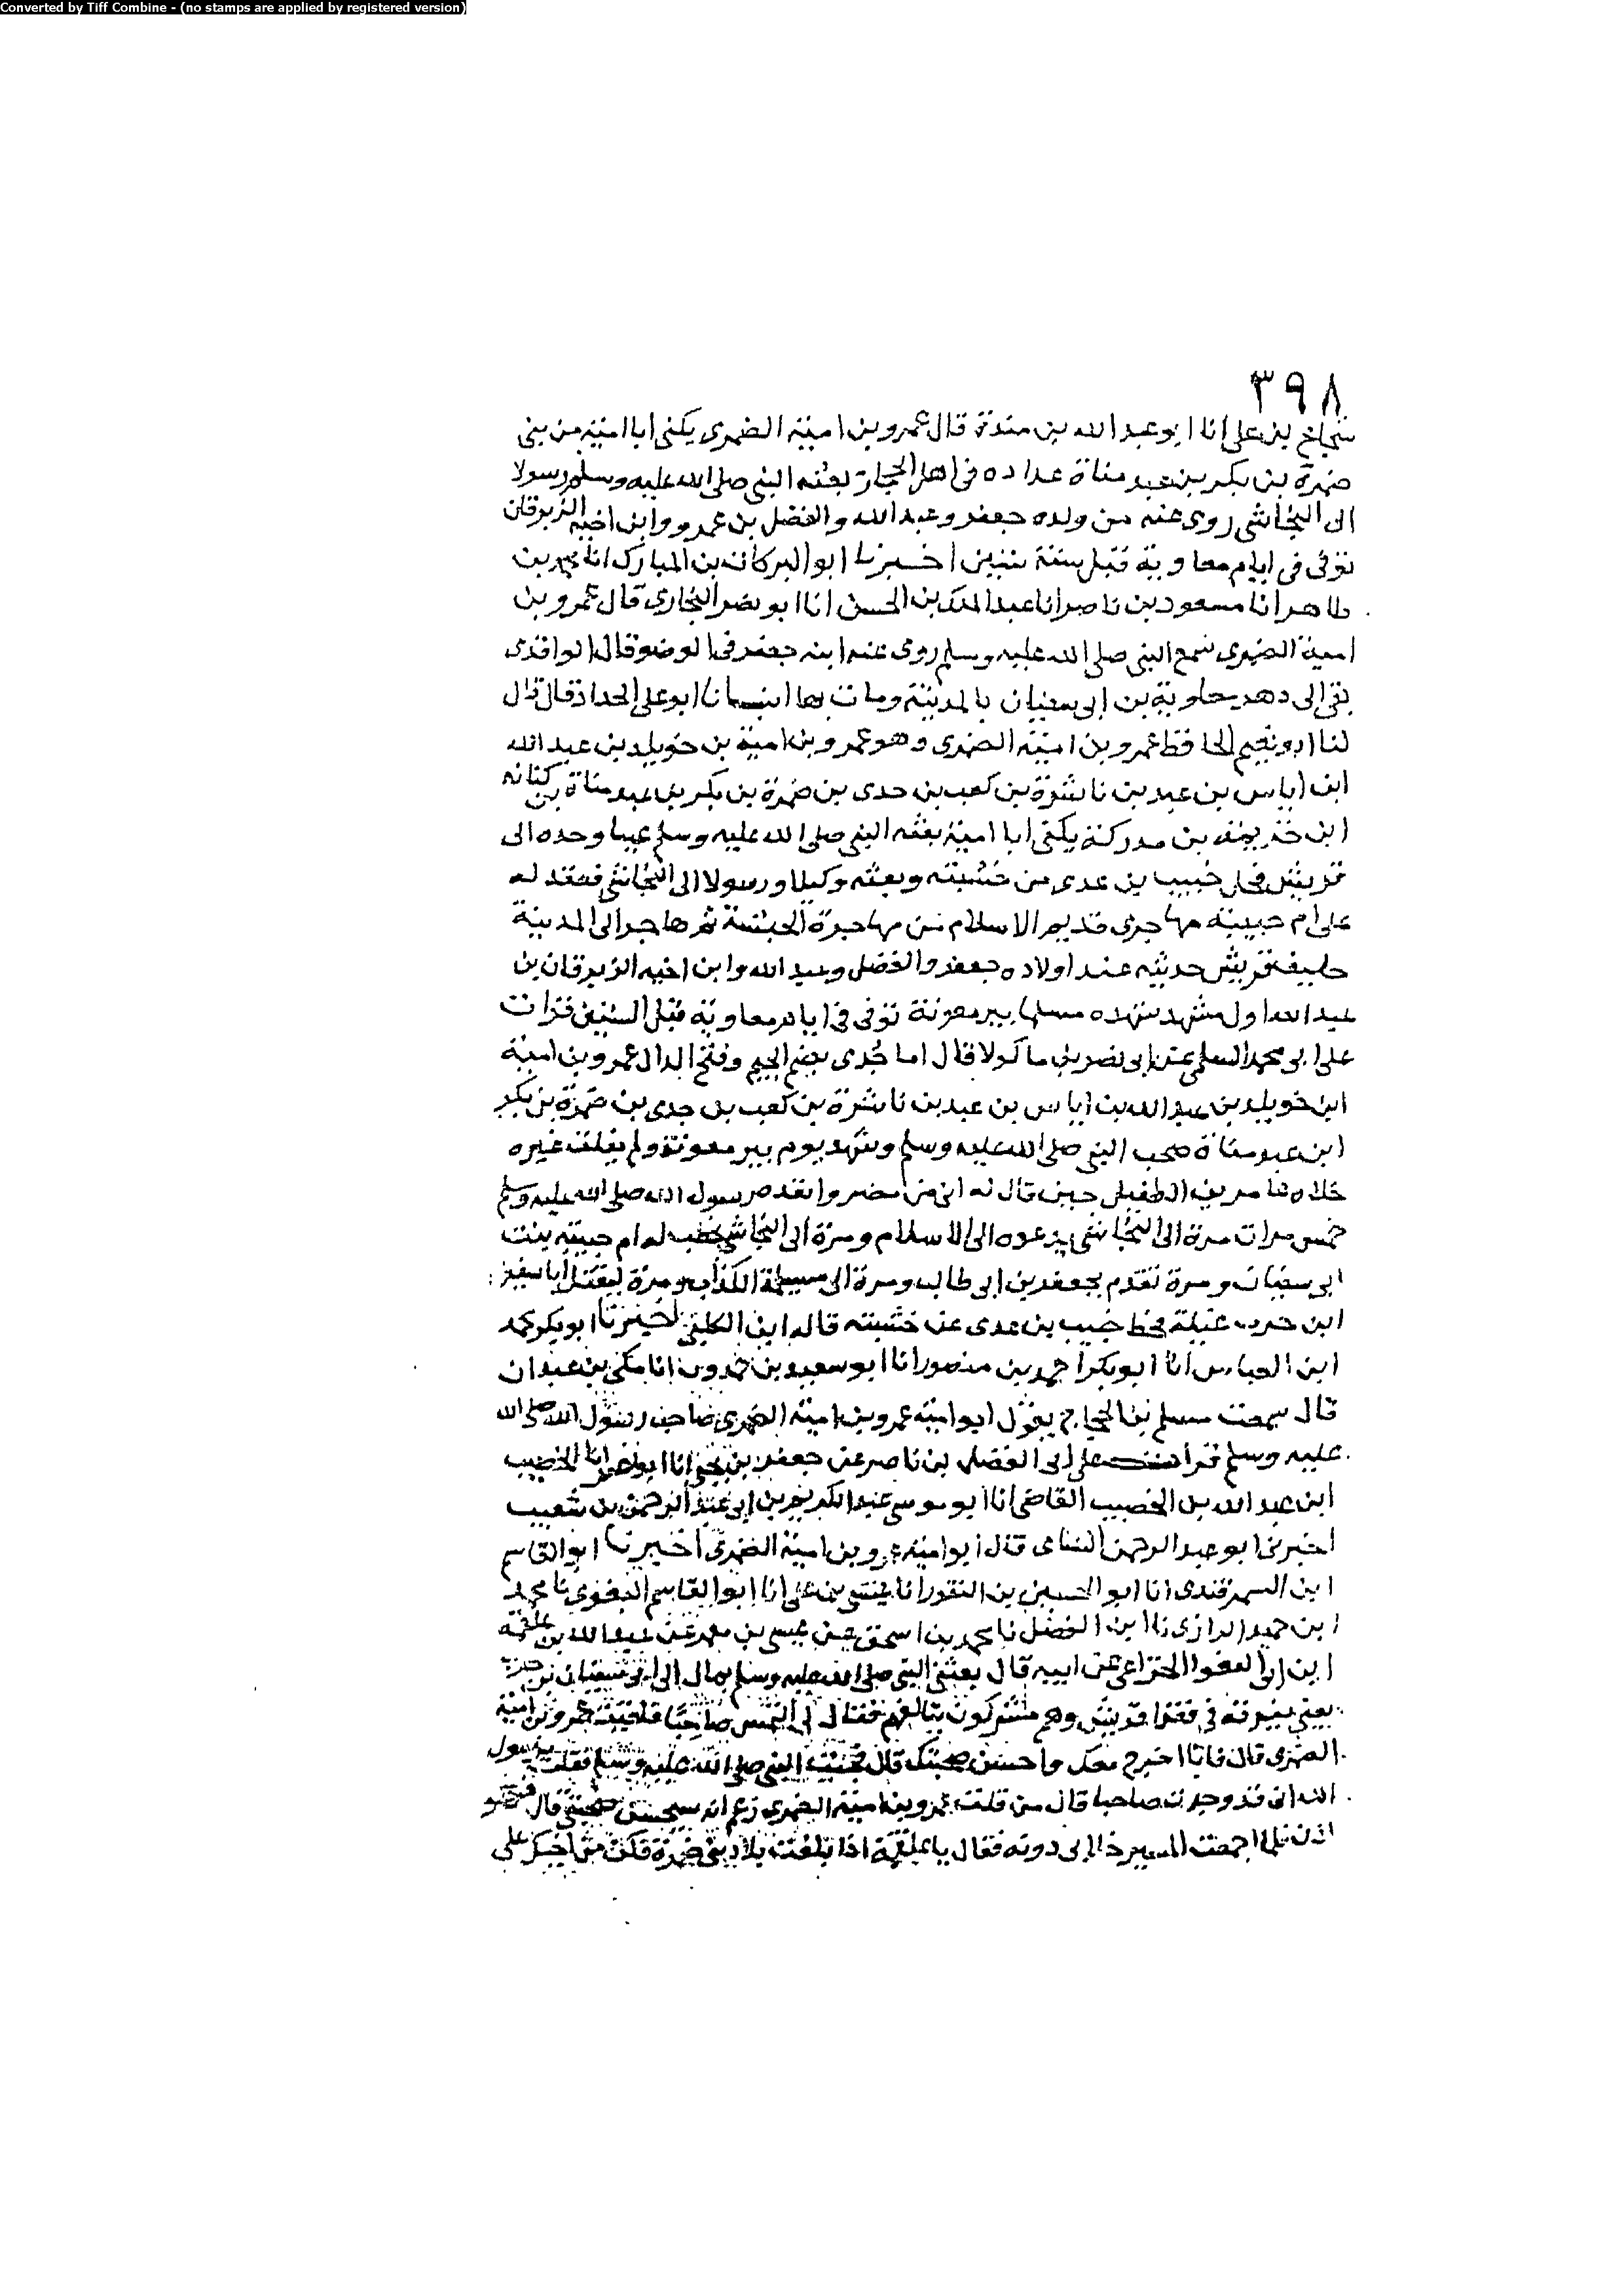 Converted by Tiff Combine - (no stamps are applied by registered version)
٣٩٨
شجاع بن على انا ابو عبد الله بن مندة قال عمرو بن امية الضمرى يكنى ابا امية من بنى
ضمرة بن بكر بن عبد مناة عداده فى اهل الحجاز بعثه النبى صلى الله عليه وسلم رسولا
الى النجاشى روى عنه من ولده جعفر وعبد الله والفضل بن عمرو وابن اخيه الزبرقان
توفى فى ايام معاوية قبل ستة ستين اخبرنا ابو البركات بن المبارك انا محمد بن
طاهر انا مسعود بن ناصر انا عبد الملك بن الحسن انا ابو نصر البخارى قال عمرو بن
امية الضمرى سمع النبى صلى الله عليه وسلم روى عنه ابنه جعفر فى الوضو قال الواقدى
بقى الى دهر معاوية بن ابى سفيان بالمدينة ومات بها انبانا ابو على الحداد قال قال
لنا ابو نعيم الحافظ عمرو بن امية الضمرى وهو عمرو بن امية بن خويلد بن عبد الله
ابن اياس بن عبد بن ناشرة بن كعب بن حدى بن ضمرة بن بكر بن عبد مناة بن كنانه
ابن خزيمه بن مدركة يكنى ابا امية بعثه النبى صلى الله عليه وسلم عينا وحده الى
قريش فحل خبيب بن عدى من خشبته وبعثه وكيلا ورسولا الى النجاشى فعقد له
على ام حبيبة مهاجرى قديم الاسلام من مهاجرة الحبشة ثم هاجر الى المدينة
حليف قريش حديثه عند اولاده جعفر والفضل وعبد الله وابن اخيه الزبرقان بن
عبد الله اول مشهد شهده مسلما بير معونة توفى فى ايام معاوية قبل الستين قرات
على ابى محمد السلمى عن ابى نصر بن ماكولا قال اما جُدى بضم الجيم وفتح الدال عمرو بن امية
ابن خويلد بن عبد الله بن اياس بن عبد بن ناشرة بن كعب بن جدى بن ضمرة بن بكر
ابن عبد مناة صحب النبى صلى الله عليه وسلم وشهد يوم بير معونة ولم يفلت غيره
خلاه عامر بن الطفيل حين قال له انى من مضر وانفده رسول الله صلى الله عليه وسلم
خمس مرات مرة الى النجاشى يدعوه الى الاسلام ومرة الى النجاشى يخطب له ام حبيبة بنت
ابى سفيان ومرة تقدم بجعفر بن ابى طالب ومرة الى مسيلمة الكذاب ومرة ليقتل ابا سفين
ابن حرب غيلة فحط خبيب بن عدى عن خشبته قاله ابن الكلبى اخبرنا ابو بكر محمد
ابن العباس انا ابو بكر احمد بن منصور انا ابو سعيد بن حمدون انا مكى بن عبدان
قال سمعت مسلم بن الحجاج يقول ابو امية عمرو بن امية الضمرى صاحب رسول الله صلى الله
عليه وسلم قرات على ابى الفضل بن ناصر عن جعفر بن يحيى انا ابو نصر انا الخصيب
ابن عبد الله بن الخصيب القاضى انا ابو موسى عبد الكريم بن ابى عبد الرحمن بن شعيب
اخبرنى ابو عبد الرحمن النساى قال ابو امية عمرو بن امية الضمرى اخبرنا ابو القاسم
ابن السمرقندى انا ابو الحسين بن النقور انا عيسى بن على انا ابو القاسم البغوى نا محمد
ابن حميد الرازى نا ابن الفضل نا محمد بن اسحق عن عيسى بن معمر عن عبد الله بن علقمة
ابن ابى الفغوا الخزاعى عن ابيه قال بعثنى النبى صلى الله عليه وسلم بمال الى ابى سفيان بن حرب
يعنى يفرقه فى فقرا قريش وهم مشركون يتالفهم فقال لى التمس صاحبا فلقيت عمرو بن امية
الضمرى قال فانا اخرج معك واحسن صحبتك قال فجئت النبى صلى الله عليه وسلم فقلت يرسول
الله انى قد وجدت صاحبا قال من قلت عمرو بن امية الضمرى زعم انه سيحسن صحبتى قال فهو
اذن فلما اجمعت المسير خلا بى دونه فقال يا علقمة اذا بلغت بلاد بنى ضمرة فكن من اخيك على